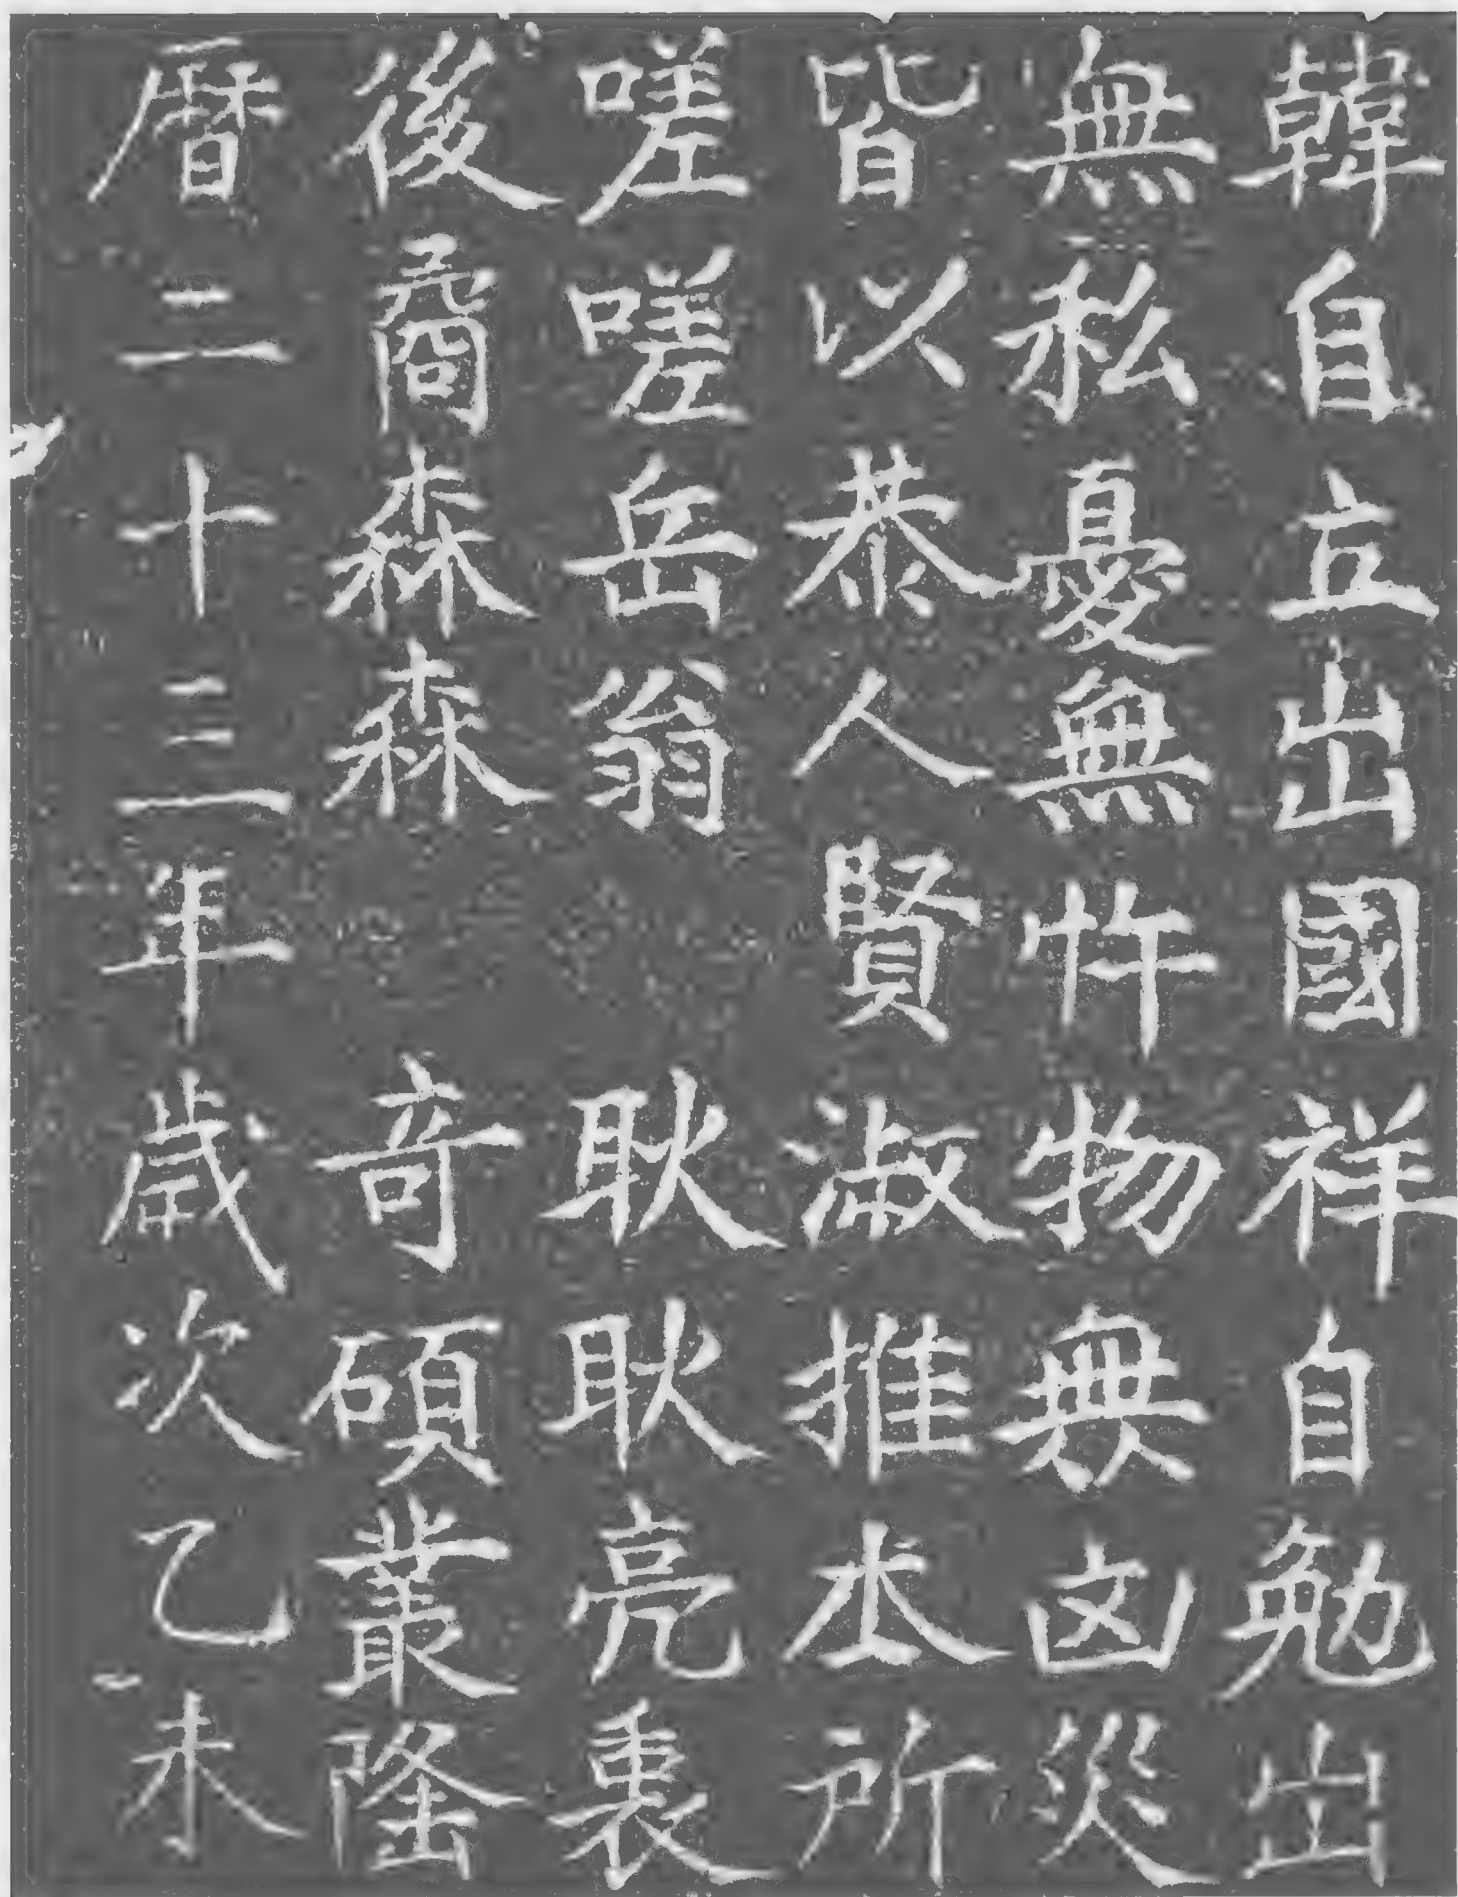 韓自立出國祥自勉出
無私憂無忤物無凶災
皆以恭人賢淑推本所
嗟嗟岳翁耿耿亮衷
後裔森森奇碩叢隆
曆二十三年歲次乙未